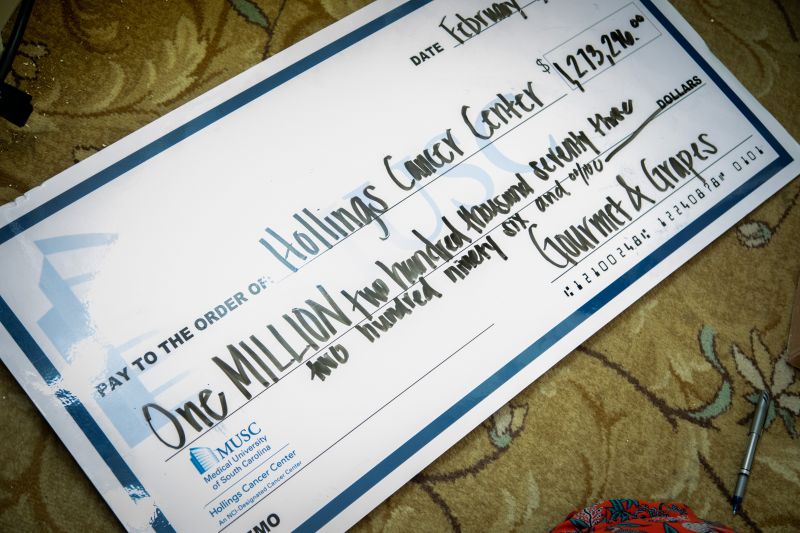 DATE February
$ 1,273,296.00
PAY TO THE ORDER OF: Hollings Cancer Center
One MILLION two hundred thousand seventy three
two hundred ninety six and 00/100 DOLLARS
Gourmet & Grapes
⑆12100248⑆ 12240878⑈ 0101
MUSC
MUSC
Medical University
of South Carolina
Hollings Cancer Center
An NCI-Designated Cancer Center
MEMO